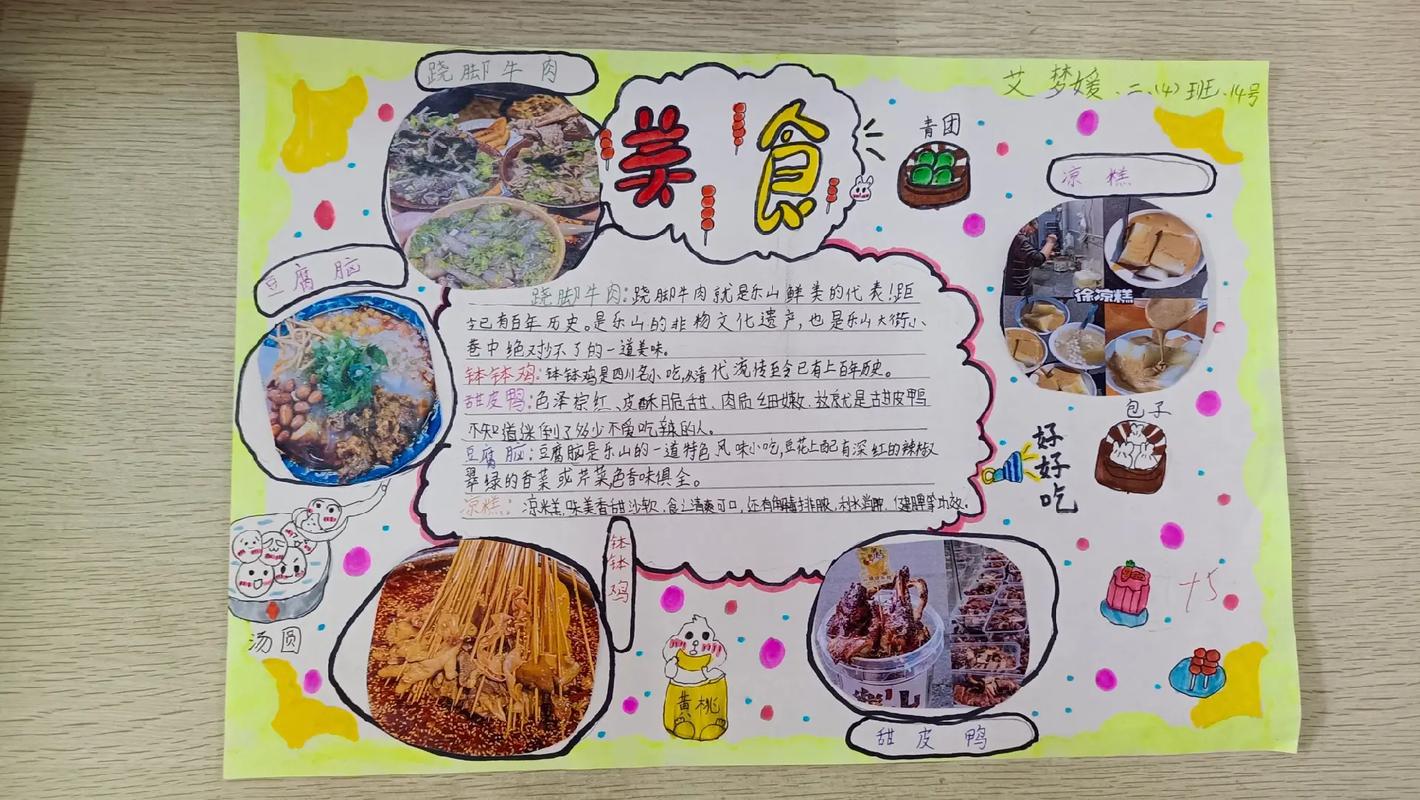 跷脚牛肉
美食
艾梦媛、二、(4)班、14号
青团
凉糕
豆腐脑
徐凉糕
跷脚牛肉:跷脚牛肉就是乐山鲜美的代表!距
今已有百年历史。是乐山的非物文化遗产,也是乐山大街小
巷中绝对抄不了的一道美味。
钵钵鸡:钵钵鸡是四川名小吃,从清代流传至今已有上百年历史。
甜皮鸭:色泽棕红、皮酥脆甜、肉质细嫩、这就是甜皮鸭
不知道迷倒了多少不爱吃辣的人。
豆腐脑:豆腐脑是乐山的一道特色风味小吃,豆花上配有深红的辣椒
翠绿的香菜或芹菜,色香味俱全。
凉糕:凉糕,味美香甜沙软、食之清爽可口,还有排脓、利水消肿、健脾等功效。
包子
好好吃
钵钵鸡
汤圆
黄桃
甜皮鸭
+5